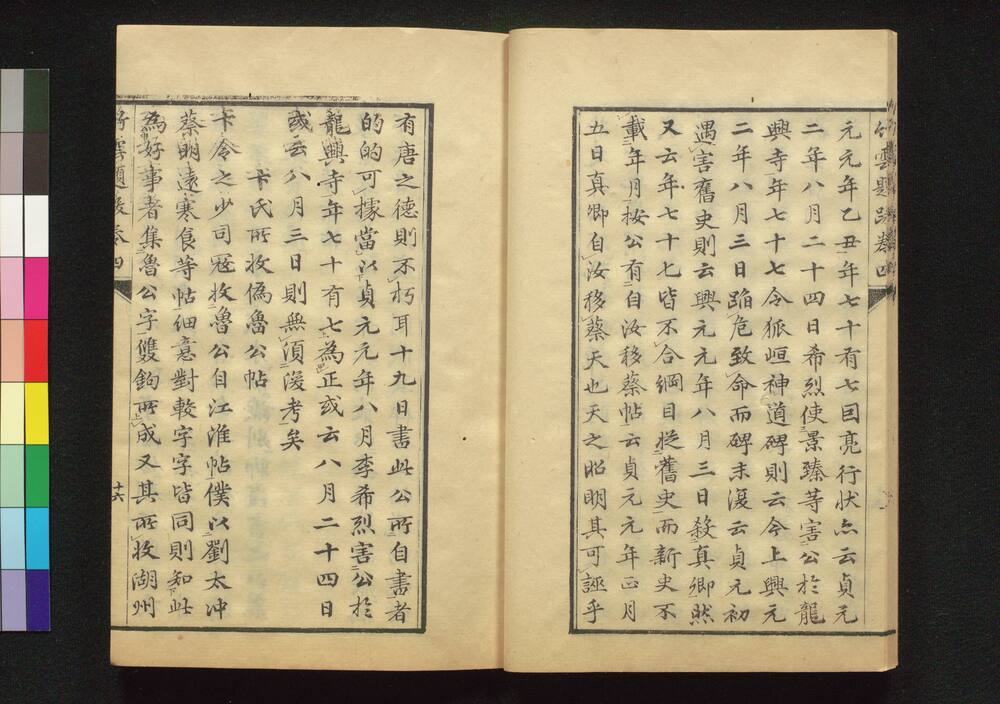 竹雲題跋卷四
元元年乙丑年七十有七因亮行狀亦云貞元
二年八月二十四日希烈使景臻等害公於龍
興寺年七十七令狐峘神道碑則云今上興元
二年八月三日蹈危致命而碑末復云貞元初
遇害舊史則云興元元年八月三日殺真卿然
又云年七十七皆不合綱目從舊史而新史不
載年月按公有自汝移蔡帖云貞元元年正月
五日真卿自汝移蔡天也天之昭明其可誣乎
有唐之德則不朽耳十九日書此公所自書者
的的可據當以貞元元年八月李希烈害公於
龍興寺年七十有七為正或云八月二十四日
或云八月三日則無須深考矣
卞氏所收偽魯公帖
卞令之少司寇收魯公自江淮帖僕以劉太沖
蔡明遠寒食等帖細意對較字字皆同則知此
為好事者集魯公字雙鉤所成又其所收湖州
竹雲題跋卷四
十六